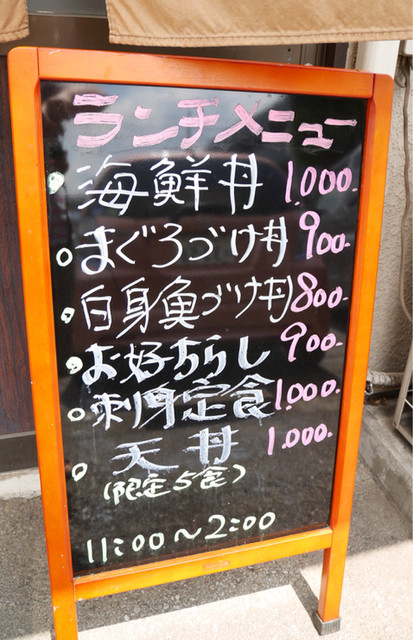 ランチメニュー
海鮮丼 1,000-
まぐろづけ丼 900-
白身魚づけ丼 800-
お好ちらし 900-
刺身定食 1,000-
天丼 1,000-
(限定5食)
11:00~2:00